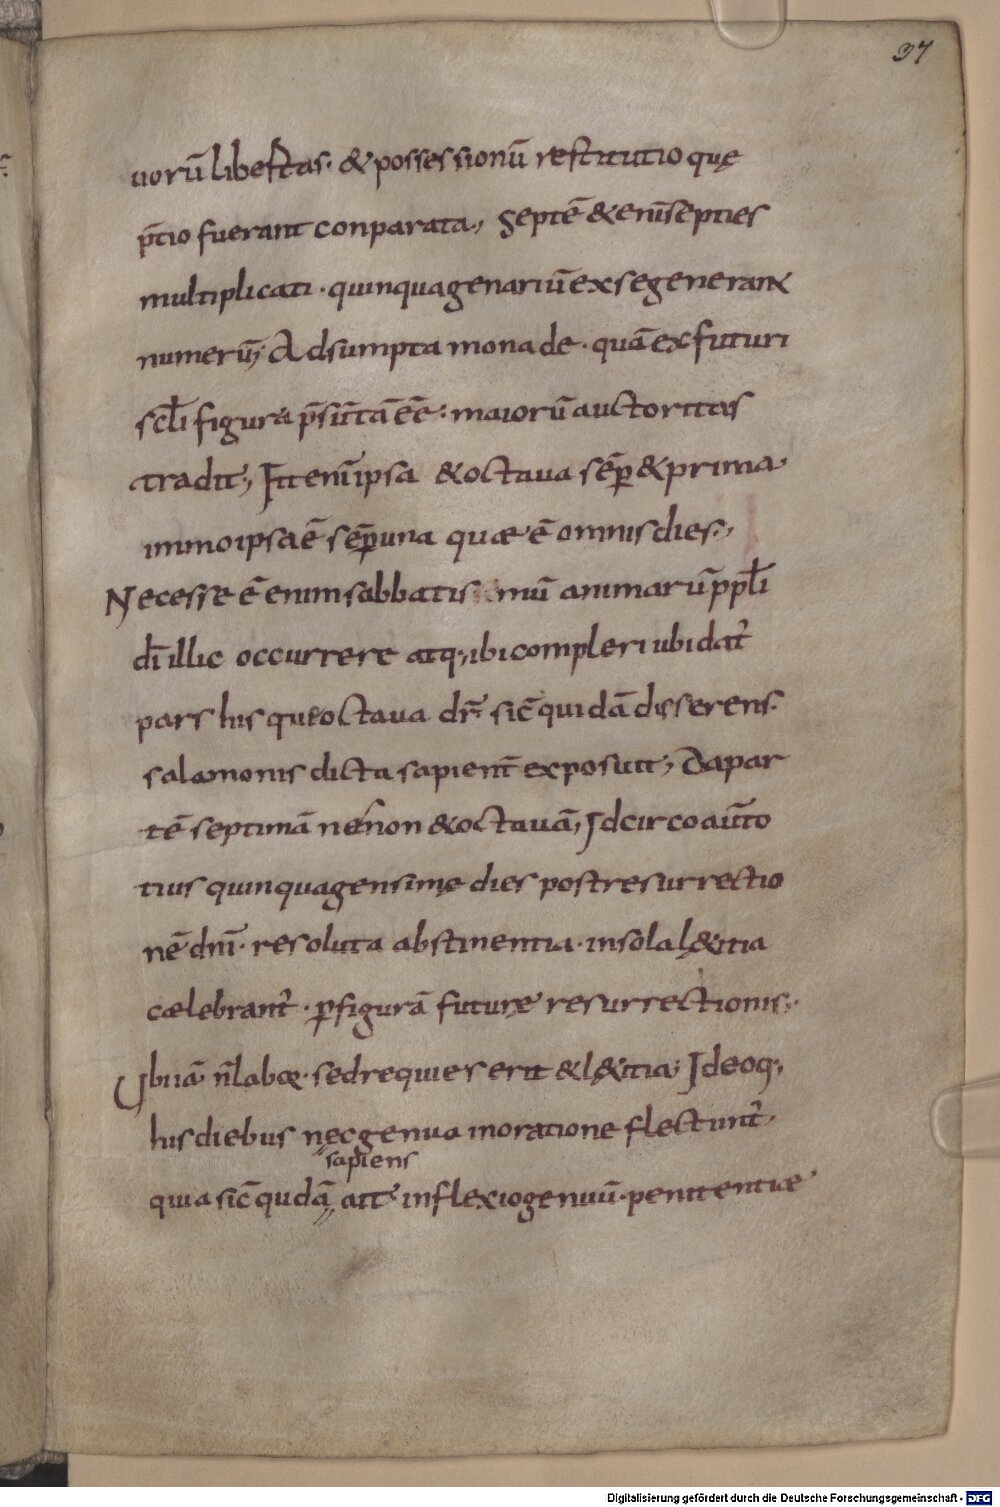 37
uorū libertas· & possessionū restitutio quę
p̄tio fuerant conparata·, septē & enī septies
multiplicati· quinquagenariū ex se generant
numerū; Adsumpta monade· quā ex futuri
scl̄i figura p̄sūtā ēē· maiorū auctoritas
tradit; It enī ipsa & octaua sēꝑ & prima·
immo ipsa ē sēꝑ una quae ē omnis dies·,
Necesse ē enim sabbatis mū animarū ppl̄i
dī illic occurrere atq; ibi compleri ubi dat̄
pars his qui octaua dr̄· sic̄ quidā disserens·
salamonis dicta sapient̄ exposuit; Da par
tē septimā nec non & octauā; Idcirco aut̄ to
tius quinquagensimę dies post resurrectio
nē dnī· resoluta abstinentia· in sola lętitia
caelebrant̄· ꝑ figurā futurę resurrectionis·,
Ubi iā n̄ labor· sed requies erit & lętitia; Ideoq;
his diebus nec genua in oratione flectunt̄·
sapiens
quia sic̄ qudā ait· inflexio genuū· penitentiae·
Digitalisierung gefördert durch die Deutsche Forschungsgemeinschaft - DFG